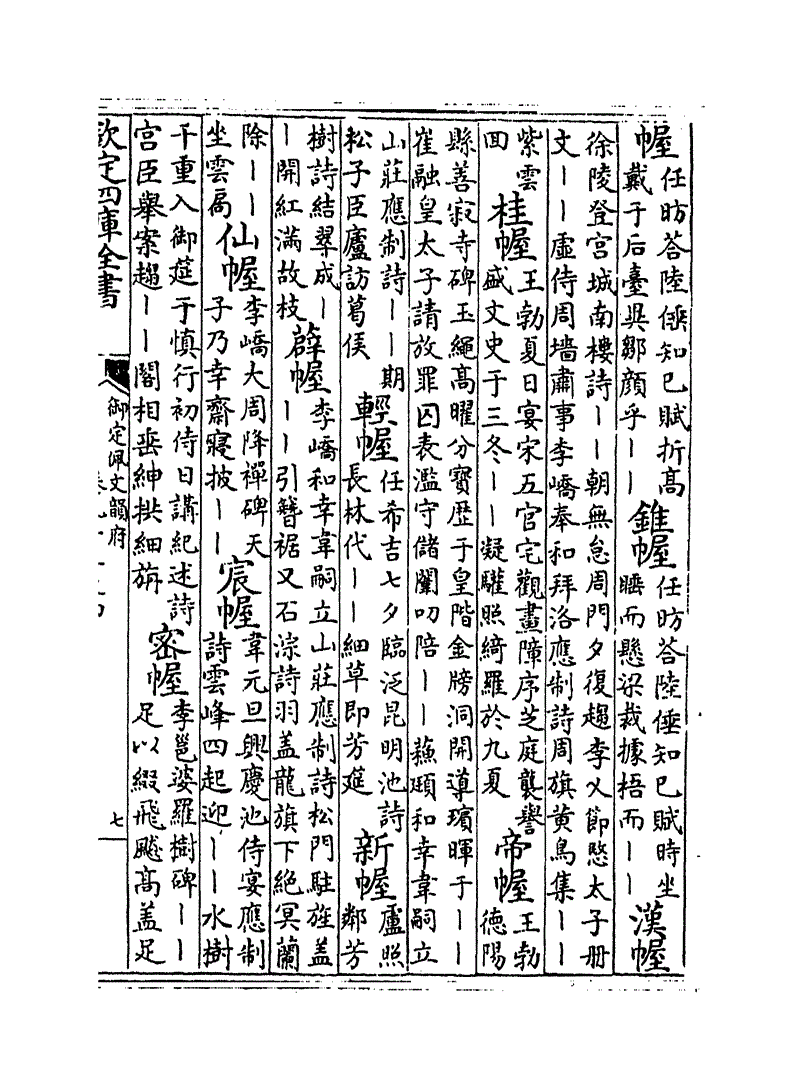 幄
任昉荅陸倕知已賦折髙
戴于后臺異鄒顔乎丨丨
錐幄
任昉荅陸倕知已賦時坐
睡而懸梁裁據梧而丨丨
漢幄
徐陵登宫城南樓詩丨丨朝無怠周門夕復趨李乂節愍太子册
文丨丨虚侍周墻肅事李嶠奉和拜洛應制詩周旗黄鳥集丨丨
紫雲
囬
桂幄
王勃夏日宴宋五官宅觀畫障序芝庭襲譽
盛文史于三冬丨丨凝驩照綺羅於九夏
帝幄
王勃
德陽
縣善寂寺碑玉繩髙曜分寶歴于皇階金牓洞開導璸暉于丨丨
崔融皇太子請放罪囚表濫守儲闈叨陪丨丨蘓頲和幸韋嗣立
山莊應制詩丨丨期
松子臣廬訪葛侯
輕幄
任希吉七夕臨泛昆明池詩
長林代丨丨細草即芳筵
新幄
盧照
鄰芳
樹詩結翠成丨
丨開紅滿故枝
薜幄
李嶠和幸韋嗣立山莊應制詩松門駐旌盖
丨丨引簪裾又石淙詩羽盖龍旗下絶冥蘭
除丨丨
坐雲扃
仙幄
李嶠大周降禪碑天
子乃幸齋寢披丨丨
宸幄
韋元旦興慶池侍宴應制
詩雲峰四起迎丨丨水樹
千重入御筵于慎行初侍日講紀述詩
宫臣舉案趨丨丨閣相垂紳拱細旃
密幄
李邕婆羅樹碑丨丨
足以綴飛飈髙盖足
欽定四庫全書
御定佩文韻府
七